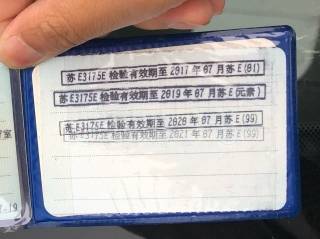 苏E3175E 检验有效期至2017年07月苏E(01)
苏E3175E 检验有效期至2019年07月苏E(元素)
苏E3175E 检验有效期至2020年07月苏E(99)
苏E3175E 检验有效期至2021年07月苏E(99)